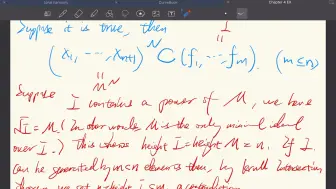 Chapter 4 EX
Suppose it is true, then
I
(x₁, ⋯, xₙ₊₁)ᴺ ⊂ (f₁, ⋯, fₘ). (m ≤ n)
"
Mᴺ
Suppose I contains a power of M, we have
√I = M. (In other words M is the only minimal ideal
over I.) This shows height I = height M = n. If I
can be generated by m<n elements then, by Krull Intersection
theorem we get n = height I ≤ m, a contradiction